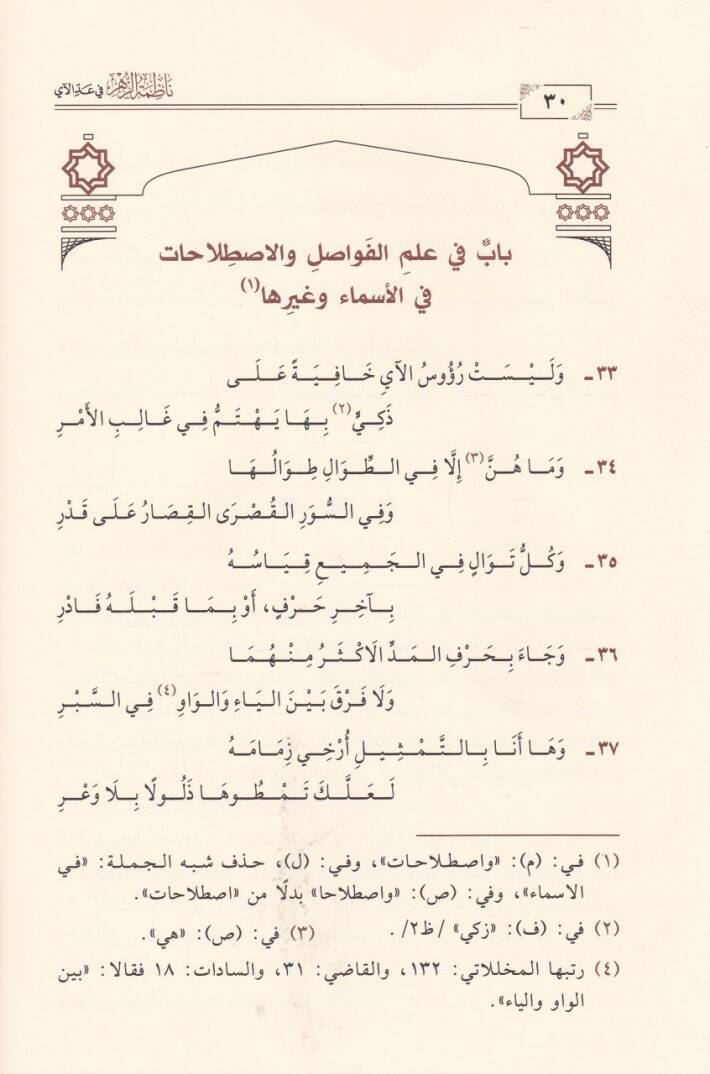 ٣٠
ناظمة الزهر في عد الآي
بابٌ في علمِ الفَواصلِ والاصطِلاحات
في الأسماء وغيرِها(١)
٣٣ـ وَلَيْسَتْ رُؤُوسُ الآيِ خَافِيَةً عَلَى
ذَكِيٍّ(٢) بِهَا يَهْتَمُّ فِي غَالِبِ الأَمْرِ
٣٤ـ وَمَا هُنَّ(٣) إِلَّا فِي الطِّوَالِ طِوَالُهَا
وَفِي السُّوَرِ القُصْرَى القِصَارُ عَلَى قَدْرِ
٣٥ـ وَكُلُّ تَوَالٍ فِي الجَمِيعِ قِيَاسُهُ
بِآخِرِ حَرْفٍ، أَوْ بِمَا قَبْلَهُ فَادْرِ
٣٦ـ وَجَاءَ بِحَرْفِ المَدِّ الَاكْثَرُ مِنْهُمَا
وَلَا فَرْقَ بَيْنَ اليَاءِ وَالوَاوِ(٤) فِي السَّبْرِ
٣٧ـ وَهَا أَنَا بِالتَّمْثِيلِ أُرْخِي زِمَامَهُ
لَعَلَّكَ تَمْطُوهَا ذَلُولًا بِلَا وَعْرِ
(١) في: (م): «واصطلاحات»، وفي: (ل)، حذف شبه الجملة: «في
الاسماء»، وفي: (ص): «واصطلاحا» بدلًا من «اصطلاحات».
(٢) في: (ف): «زكي» /ظ٢/. (٣) في: (ص): «هي».
(٤) رتبها المخللاتي: ١٣٢، والقاضي: ٣١، والسادات: ١٨ فقالا: «بين
الواو والياء».